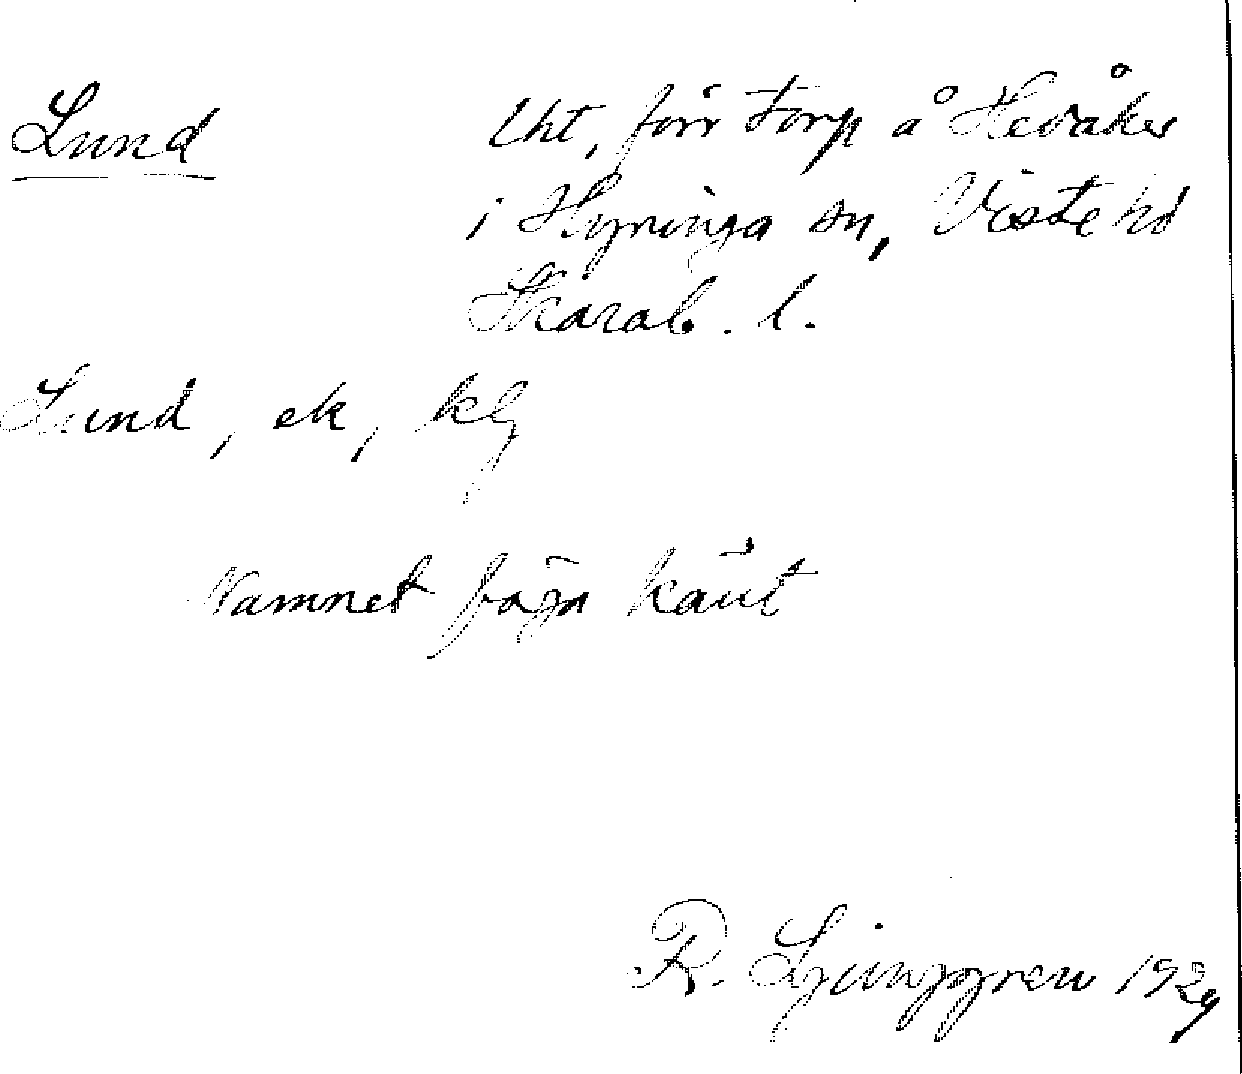 Lund Lht, förr torp å Hevåker
i Hyringa sn, Viste hd
Skarab. l.
Lund, ek, klg
Namnet föga känt
R. Ljunggren 1929